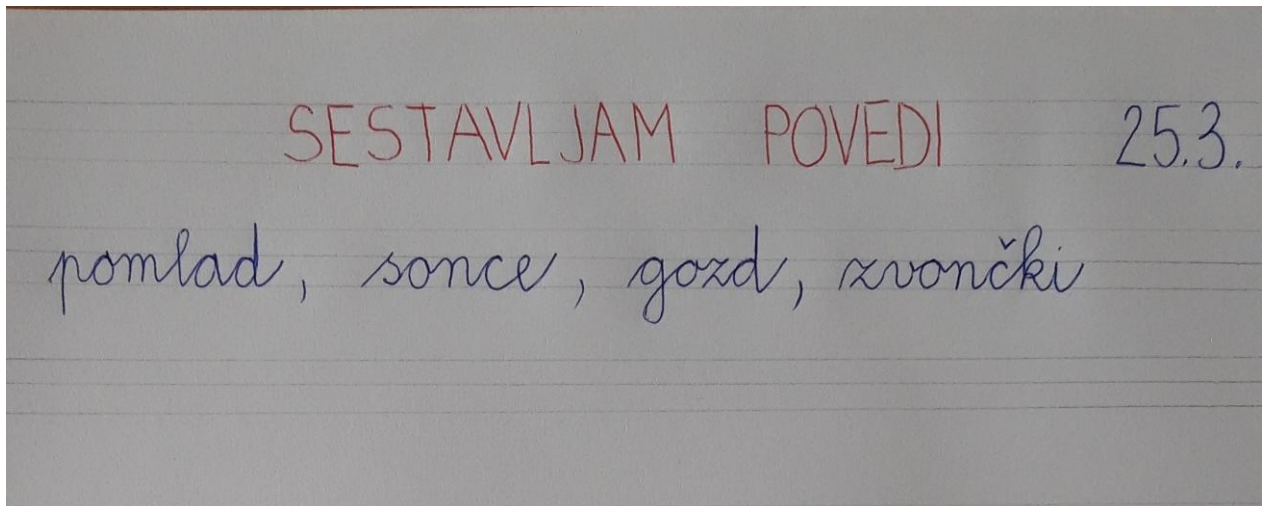 SESTAVLJAM POVEDI 25.3.
pomlad, sonce, gozd, zvončki